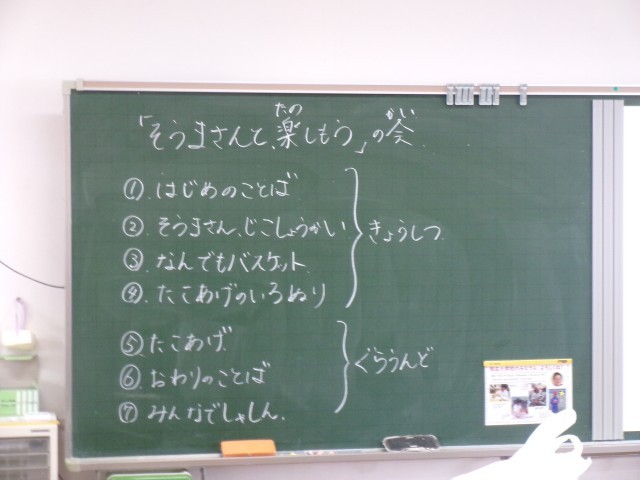 「そうまさんと、楽しもう」の会
たの
がい
①.はじめのことば
②.そうまさん、じこしょうかい
③.なんでもバスケット.
④.たこあげのいろぬり
きょうしつ.
⑤.たこあげ
⑥.おわりのことば
⑦.みんなでしゃしん.
ぐらうんど